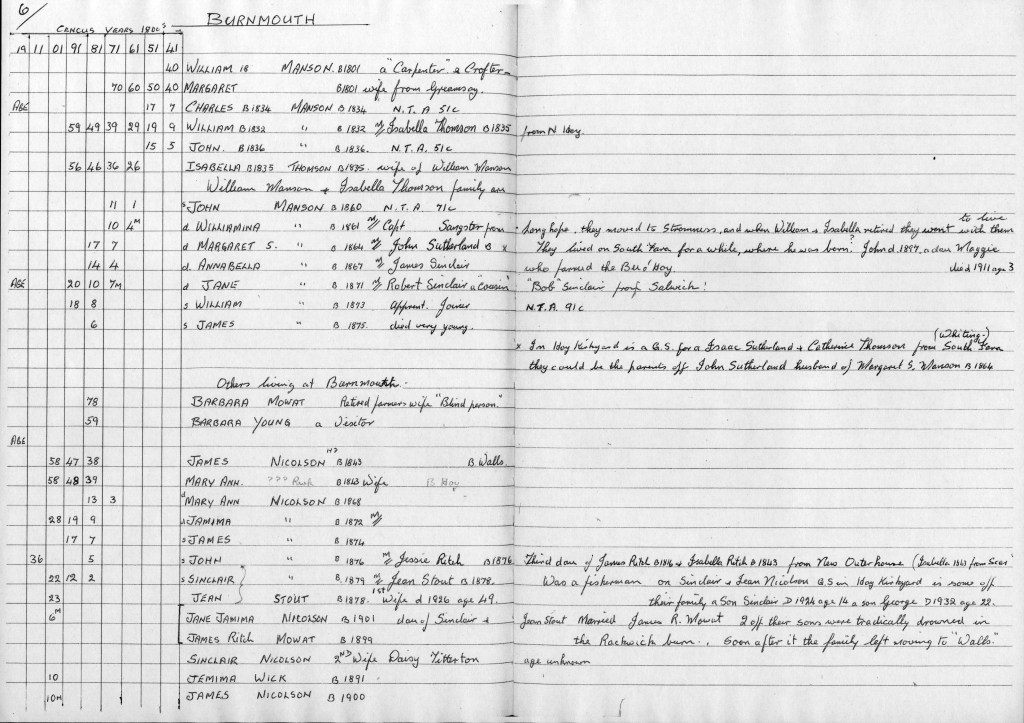 6/ BURNMOUTH
CENCUS YEARS 1800s
19 11 01 91 81 71 61 51 41
40 WILLIAM MANSON. B1801 a "Carpenter" & Crofter
70 60 50 40 MARGARET B1801 wife from Greamsay.
AGE 17 7 CHARLES B1834 MANSON B 1834 N.T. A 51c
59 49 39 29 19 9 WILLIAM B1832 " B 1832 m// Isabella Thomson B1835 from N Hoy.
15 5 JOHN. B1836 " B 1836. N.T.A. 51c
56 46 36 26 ISABELLA B1835 THOMSON B1835. wife of William Manson
William Manson + Isabella Thomson family are
11 1 s JOHN MANSON B 1860 N.T. A 71c
to live
10 4M d WILLIAMINA " B 1861 m// Capt Sangster from Longhope. they moved to Stromness, and when William & Isabella retired they went with them
17 7 d MARGARET S. " B 1864 m// John Sutherland B x They lived on South Fara for a while, where he was born? John d. 1897, a dau Maggie
14 4 d. ANNABELLA " B 1867 m// James Sinclair who farmed the Bu o' Hoy. died 1911 age 3
AGE 20 10 7M d JANE " B 1871 m// Robert Sinclair a "cousin" "Bob" Sinclair from Salwick!
18 8 s WILLIAM " B 1873 Apprent. Joiner N.T.A. 91c
6 s JAMES " B 1875. died very young.
(Whiting.)
x In Hoy Kirkyard is a G.S. for a Isaac Sutherland + Catherine Thomson from South Fara
they could be the parents off John Sutherland husband of Margaret S. Manson B 1864
Others living at Burnmouth.
78 BARBARA MOWAT Retired farmers wife "Blind person."
59 BARBARA YOUNG a Visitor
AGE
58 47 38 JAMES NICOLSON B1843 B. Walls.
58 48 39 MARY ANN. ??? B 1843 Wife B Hoy
13 3 d MARY ANN NICOLSON B 1868
28 19 9 JAMIMA " B 1872 m//
17 7 s JAMES " B 1874
36 5 s JOHN " B 1876 m// Jessie Ritch B1876 Third dau of James Ritch B1846 & Isabella Ritch B1843 from New Outerhouse
22 12 2 s SINCLAIR " B. 1879 m// Jean Stout B 1878. Was a fisherman on Sinclair & Jean Nicolson G.S in Hoy Kirkyard is sons off
23 JEAN STOUT B1878. 1st Wife d 1926 age 49. their family a Son Sinclair D 1924 age 14 a son George D 1932 age 22.
6M JANE JAMIMA NICOLSON B 1901 dau of Sinclair & Jean Stout Married James R. Mowat 2 off their sons were tradically drowned in
JAMES Ritch MOWAT B 1899 the Rackwick burn. Soon after it the family left moving to "Walls"
SINCLAIR NICOLSON 2ND Wife Daisy Titterton age unknown
10 JEMIMA WICK B 1891
10M JAMES NICOLSON B 1900